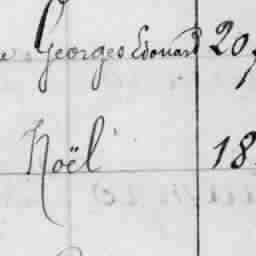 Georges Edouard 20
Noël 18